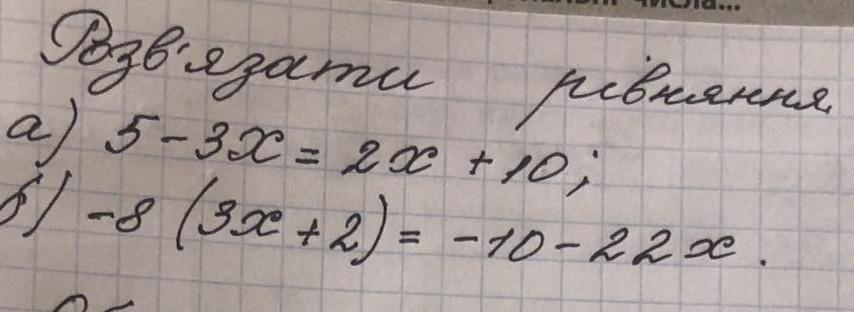 числа...
Розв'язати рівняння
а) 5 - 3x = 2x + 10;
б) -8 (3x + 2) = -10 - 22x.